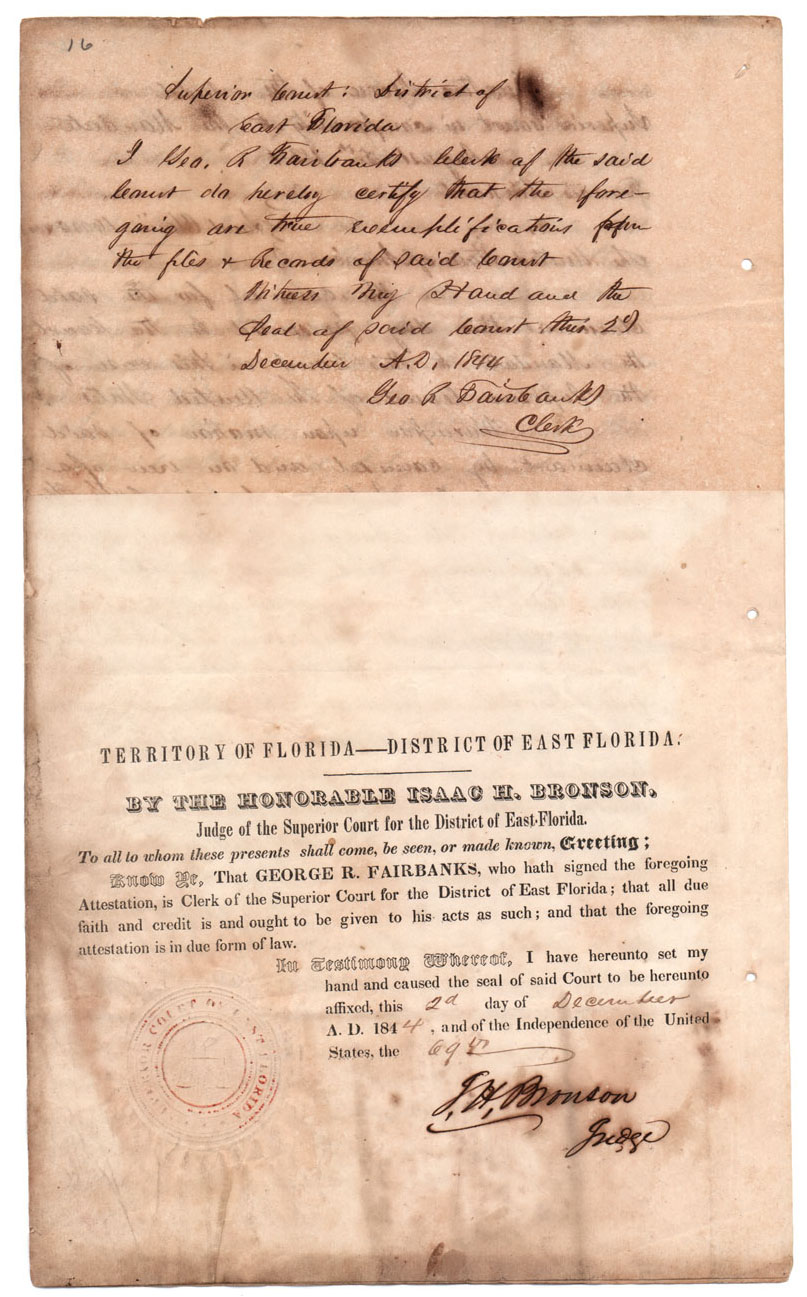 16
Superior Court: District of
East Florida
I Geo. R Fairbanks Clerk of the said
Court do hereby certify that the fore-
going are true exemplifications from
the files & Records of said Court
Witness My Hand and the
Seal of said Court this 2d
December A.D. 1844
Geo R Fairbanks
Clerk
TERRITORY OF FLORIDA—DISTRICT OF EAST FLORIDA.
BY THE HONORABLE ISAAC H. BRONSON,
Judge of the Superior Court for the District of East-Florida.
To all to whom these presents shall come, be seen, or made known, Greeting;
Know Ye, That GEORGE R. FAIRBANKS, who hath signed the foregoing
Attestation, is Clerk of the Superior Court for the District of East Florida; that all due
faith and credit is and ought to be given to his acts as such; and that the foregoing
attestation is in due form of law.
In Testimony Whereof, I have hereunto set my
hand and caused the seal of said Court to be hereunto
affixed, this 2d day of December
A. D. 1844, and of the Independence of the United
States, the 69th
SUPERIOR COURT OF EAST FLORIDA
I, H, Bronson
Judge